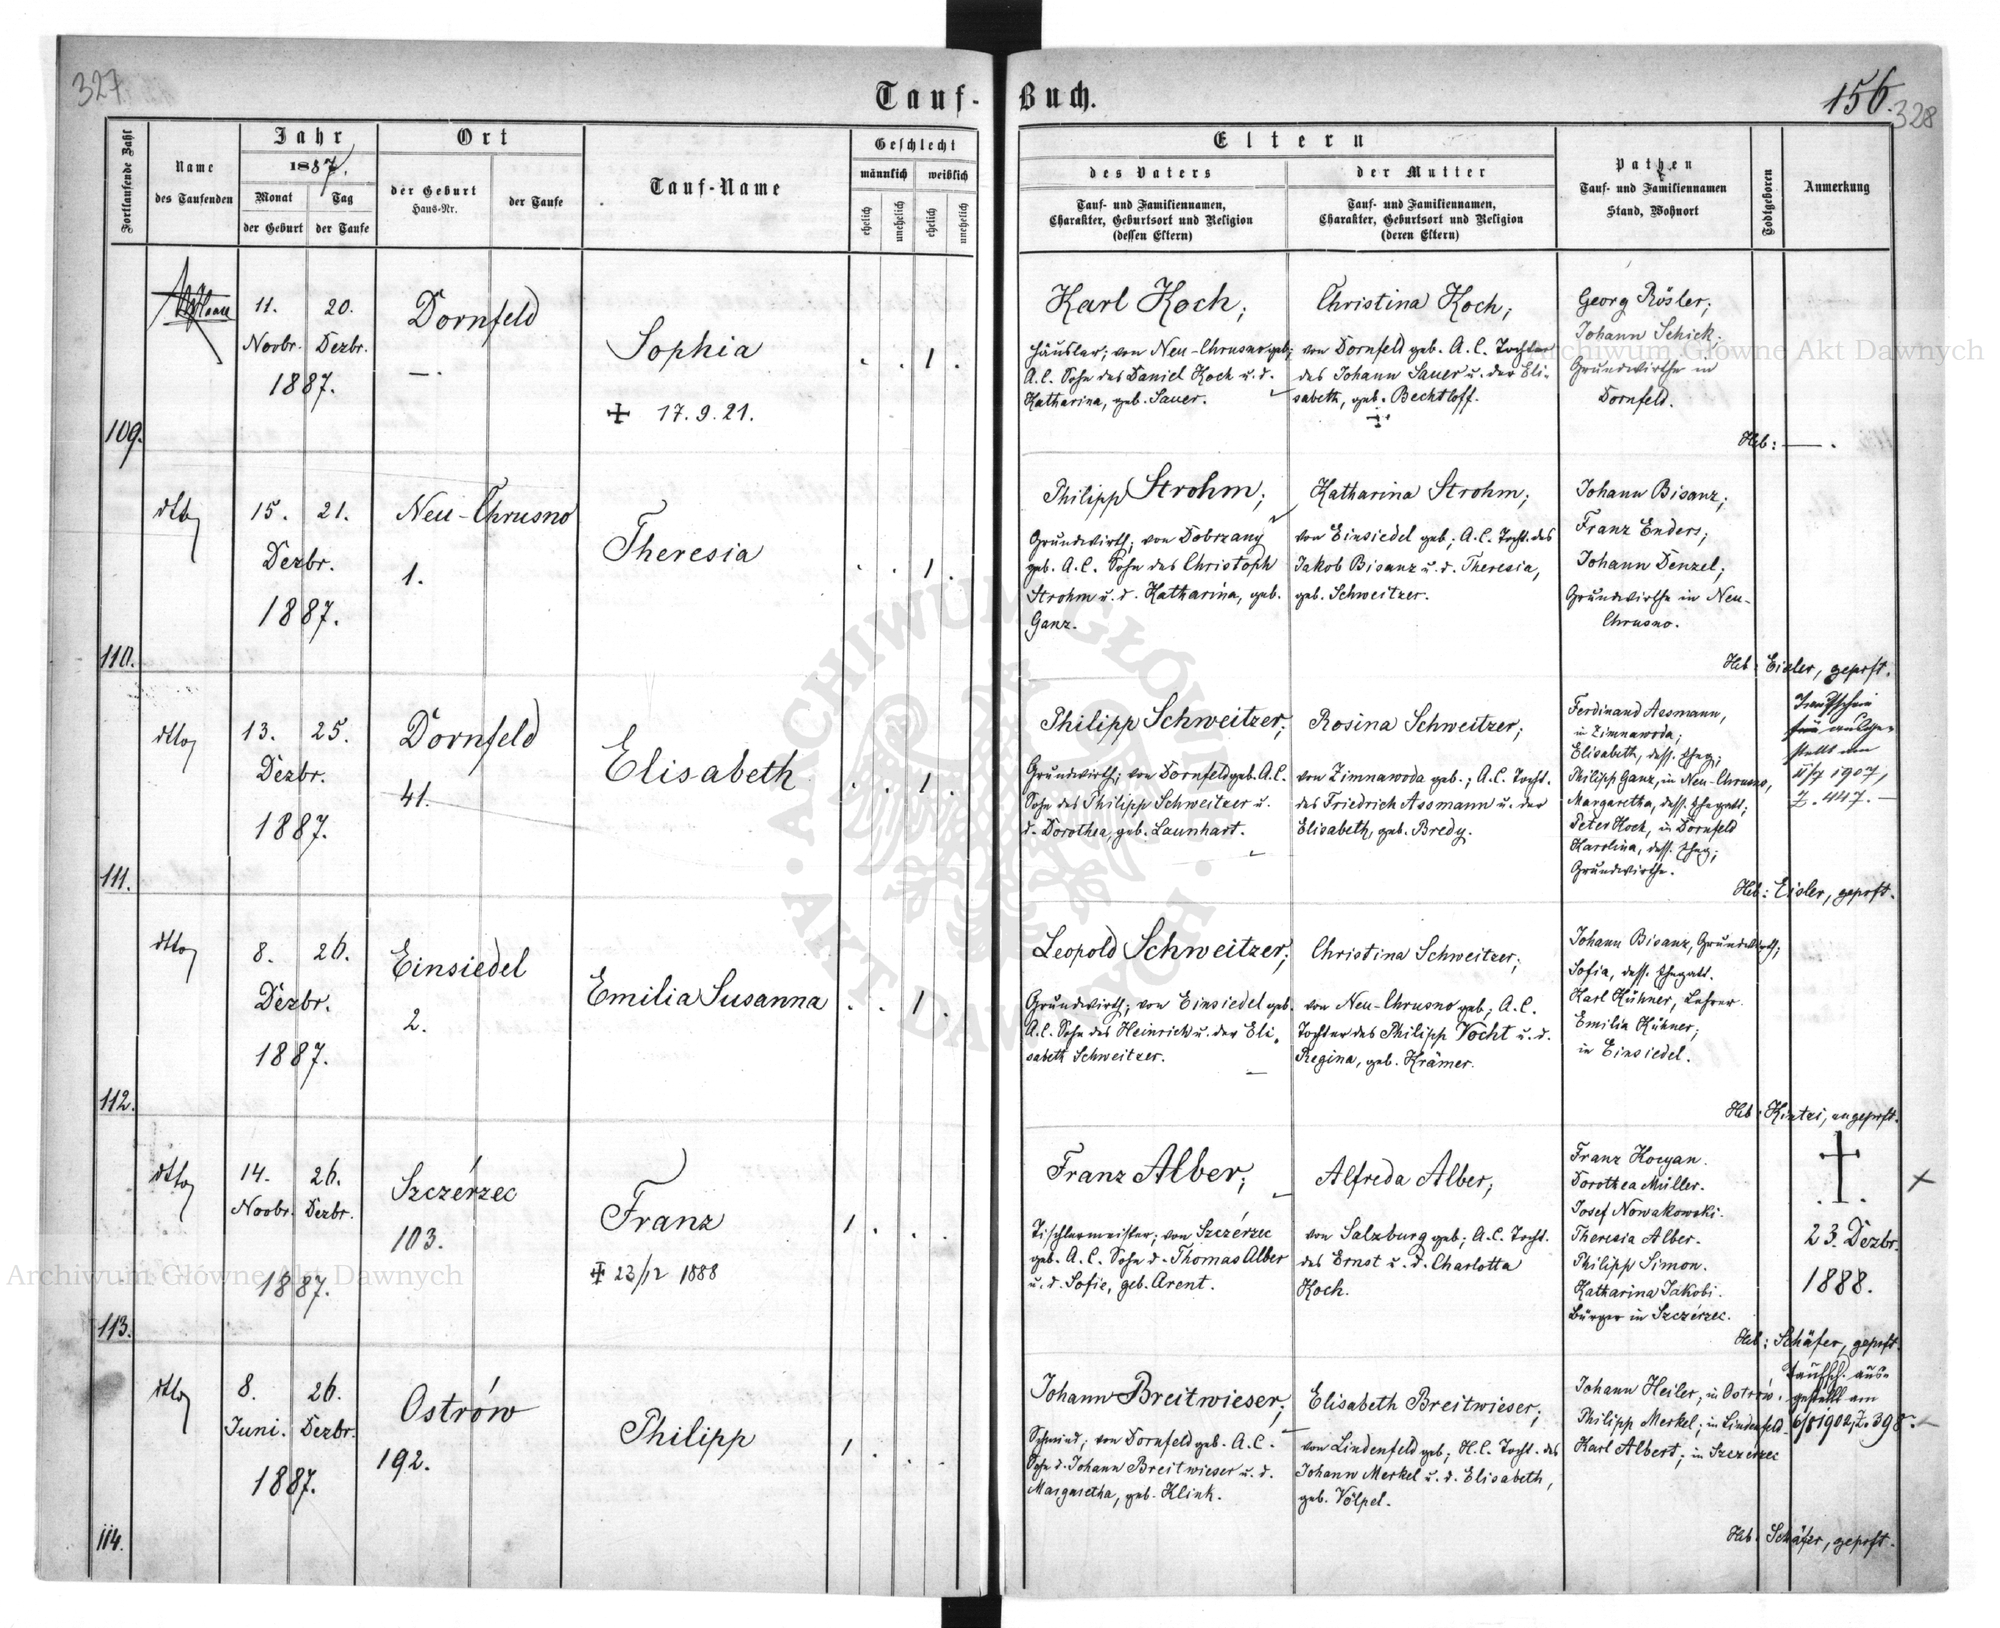 327
Tauf-Buch.
156.
328
Fortlaufende Zahl
Name
des Taufenden
Jahr
1887.
Monat
der Geburt
Tag
der Taufe
Ort
der Geburt
Haus-Nr.
der Taufe
Tauf-Name
Geschlecht
männlich
weiblich
ehelich
unehelich
ehelich
unehelich
Eltern
des Vaters
Tauf- und Familiennamen,
Charakter, Geburtsort und Religion
(dessen Eltern)
der Mutter
Tauf- und Familiennamen,
Charakter, Geburtsort und Religion
(deren Eltern)
Pathen
Tauf- und Familiennamen
Stand, Wohnort
Todtgeboren
Anmerkung
109.
11. 20.
Novbr. Dezbr.
1887.
Dornfeld
—.
Sophia
17. 9. 21.
1
Karl Koch;
Häusler; von Neu-Chrusno geb;
A.C. Sohn des Daniel Koch u. d.
Katharina, geb. Sauer.
Christina Koch;
von Dornfeld geb. A.C. Tochter
des Johann Sauer u. der Eli-
sabeth, geb. Bechtloff.
Georg Rösler;
Johann Schick;
Grundwirthe in
Dornfeld.
Heb: —.
110.
dtto
15. 21.
Dezbr.
1887.
Neu-Chrusno
1.
Theresia
1
Philipp Strohm;
Grundwirth; von Dobrzany
geb. A.C. Sohn des Christoph
Strohm u. d. Katharina, geb.
Ganz.
Katharina Strohm;
von Einsiedel geb; A.C. Tocht. des
Jakob Bisanz u. d. Theresia,
geb. Schweitzer.
Johann Bisanz;
Franz Enders;
Johann Denzel;
Grundwirthe in Neu-
Chrusno.
Heb: Eisler, geprft.
111.
dtto
13. 25.
Dezbr.
1887.
Dornfeld
41.
Elisabeth
1
Philipp Schweitzer;
Grundwirth; von Dornfeld geb. A.C.
Sohn des Philipp Schweitzer u.
d. Dorothea, geb. Launhart.
Rosina Schweitzer;
von Zimnawoda geb.; A.C. Tocht.
des Friedrich Assmann u. der
Elisabeth, geb. Bredy.
Ferdinand Assmann,
in Zimnawoda;
Elisabeth, dess. Eheg;
Philipp Ganz, in Neu-Chrusno,
Margaretha, dess. Ehegatt;
Peter Koch, in Dornfeld
Karolina, dess. Eheg;
Grundwirthe.
ausge-
stellt am
1907,
Z. 447.—
Heb: Eisler, geprft.
112.
dtto
8. 26.
Dezbr.
1887.
Einsiedel
2.
Emilia Susanna
1
Leopold Schweitzer;
Grundwirth; von Einsiedel geb.
A.C. Sohn des Heinrich u. der Eli-
sabeth Schweitzer.
Christina Schweitzer;
von Neu-Chrusno geb; A.C.
Tochter des Philipp Vocht u. d.
Regina, geb. Krämer.
Johann Bisanz, Grundwirth;
Sofia, dess. Ehegatt.
Karl Kühner, Lehrer.
Emilia Kühner;
in Einsiedel.
Heb: Kintzi, ungeprft.
113.
dtto
14. 26.
Novbr. Dezbr.
1887.
Szczérzec
103.
Franz
23/12 1888
1
Franz Alber;
Tischlermeister; von Szczérzec
geb. A.C. Sohn d. Thomas Alber
u. d. Sofie, geb. Arent.
Alfreda Alber;
von Salzburg geb; A.C. Tocht.
des Ernst u. d. Charlotta
Koch.
Franz Kocyan.
Dorothea Müller.
Josef Nowakowski.
Theresia Alber.
Philipp Simon.
Katharina Jakobi.
Bürger in Szczérzec.
23. Dezbr.
1888.
Heb: Schäfer, geprft.
114.
dtto
8. 26.
Juni. Dezbr.
1887.
Ostrów
192.
Philipp
1
Johann Breitwieser;
Schmied; von Dornfeld geb. A.C.
Sohn d. Johann Breitwieser u. d.
Margaretha, geb. Klink.
Elisabeth Breitwieser;
von Lindenfeld geb; H.C. Tocht. des
Johann Merkel u. d. Elisabeth,
geb. Völpel.
Johann Heiler; in Ostrów.
Philipp Merkel; in Lindenfeld
Karl Albert; in Szczérzec
Taufsch. aus-
gestellt am
6/8 1902, Z. 398.
Heb. Schäfer, geprft.
Archiwum Główne Akt Dawnych
Archiwum Główne Akt Dawnych
ARCHIWUM GŁÓWNE AKT DAWNYCH